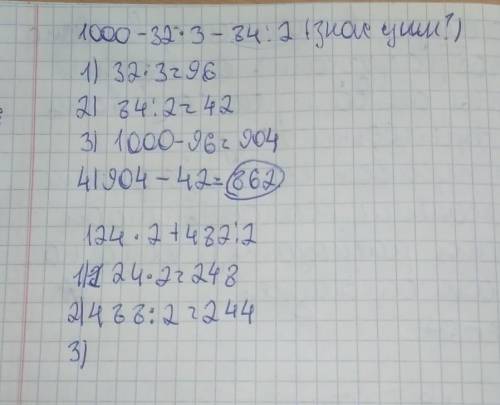 1000-32·3-84:2 (знак
1) 32·3=96
2) 84:2=42
3) 1000-96=904
4) 904-42=862
124·2+488:2
1) 124·2=248
2) 488:2=244
3)